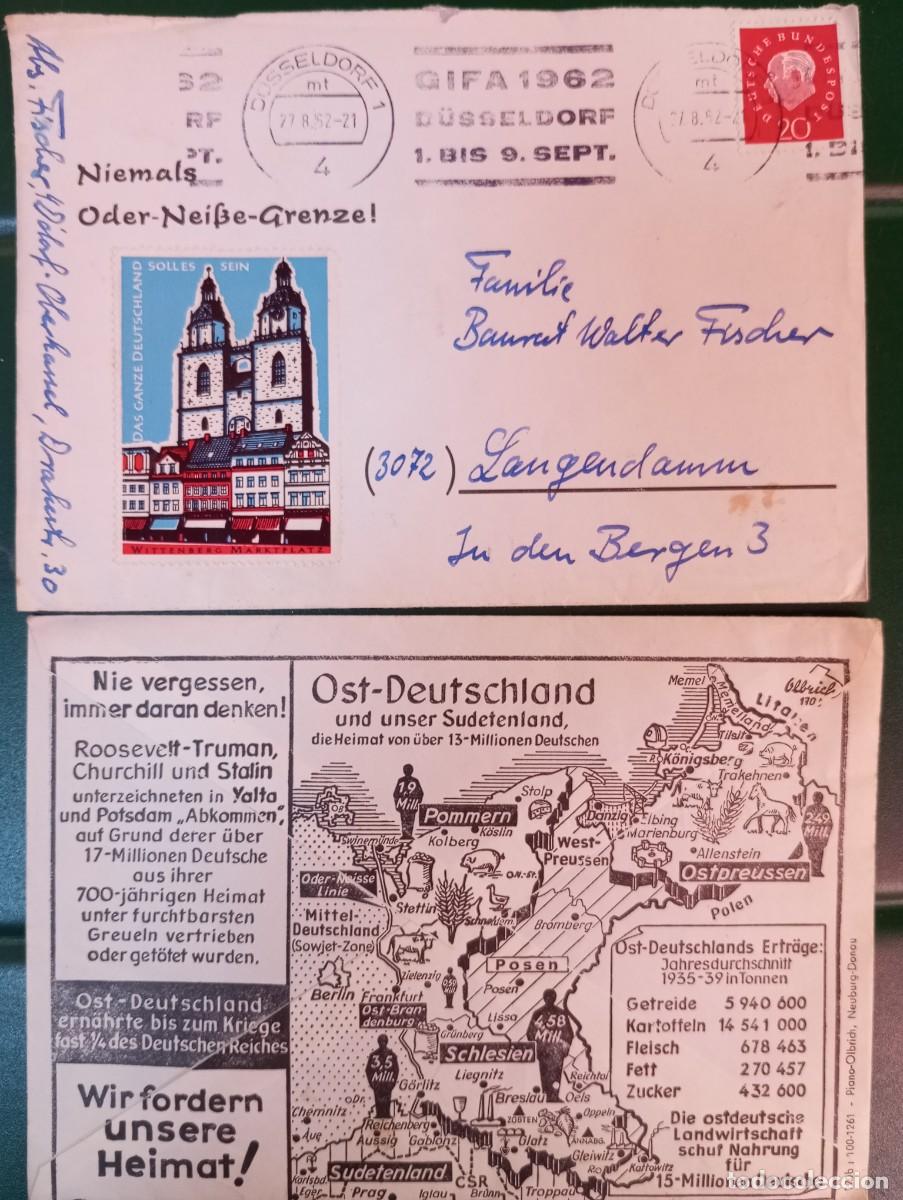 52
RF
PT.
DÜSSELDORF 1
mt
27.8.62-21
4
GIFA 1962
DÜSSELDORF
1. BIS 9. SEPT.
mt
4
1. BI
DEUTSCHE BUNDESPOST
20
Niemals
Oder-Neiße-Grenze!
DAS GANZE DEUTSCHLAND
SOLL ES SEIN
WITTENBERG MARKTPLATZ
Abs. Fischer, 4 Ddorf-Oberkassel, Drakestr. 30
Familie
Baurat Walter Fischer
(3072) Langendamm
In den Bergen 3
Nie vergessen,
immer daran denken!
Roosevelt-Truman,
Churchill und Stalin
unterzeichneten in Yalta
und Potsdam „Abkommen“,
auf Grund derer über
17-Millionen Deutsche
aus ihrer
700-jährigen Heimat
unter furchtbarsten
Greueln vertrieben
oder getötet wurden.
Ost-Deutschland
ernährte bis zum Kriege
fast ¼ des Deutschen Reiches
Wir fordern
unsere
Heimat!
Ost-Deutschland
und unser Sudetenland,
die Heimat von über 13-Millionen Deutschen
Memel
Memelland
Litauen
Olbrich
Tilsit
Königsberg
Trakehnen
1,9
Mill.
Stolp
Pommern
Köslin
Kolberg
Swinemünde
Danzig
Elbing
Marienburg
2,49
Mill.
West-
Preussen
Allenstein
Ostpreussen
Oder-Neisse
Linie
Stettin
Schneidem.
Polen
Mittel-
Deutschland
(Sowjet-Zone)
Bromberg
Zielenzig
Posen
Posen
Berlin
Frankfurt
Ost-Bran-
denburg
Lissa
Grünberg
4,58
Mill.
3,5
Mill.
Schlesien
Liegnitz
Görlitz
Breslau
Reichtal
Oels
Chemnitz
Dr.
Reichenberg
ZOBTEN
Oppeln
Aue
Aussig
Gablonz
Glatz
ANNABG.
Gleiwitz
Kattowitz
Karlsbd.
Eger
Sudetenland
Prag
Iglau
CSR
Brünn
Troppau
Ost-Deutschlands Erträge:
Jahresdurchschnitt
1935-39 in Tonnen
Getreide 5 940 600
Kartoffeln 14 541 000
Fleisch 678 463
Fett 270 457
Zucker 432 600
Die ostdeutsche
Landwirtschaft
schuf Nahrung
für
15-Millionen
100-1261 - Piano-Olbrich, Neuburg-Donau
todocoleccion